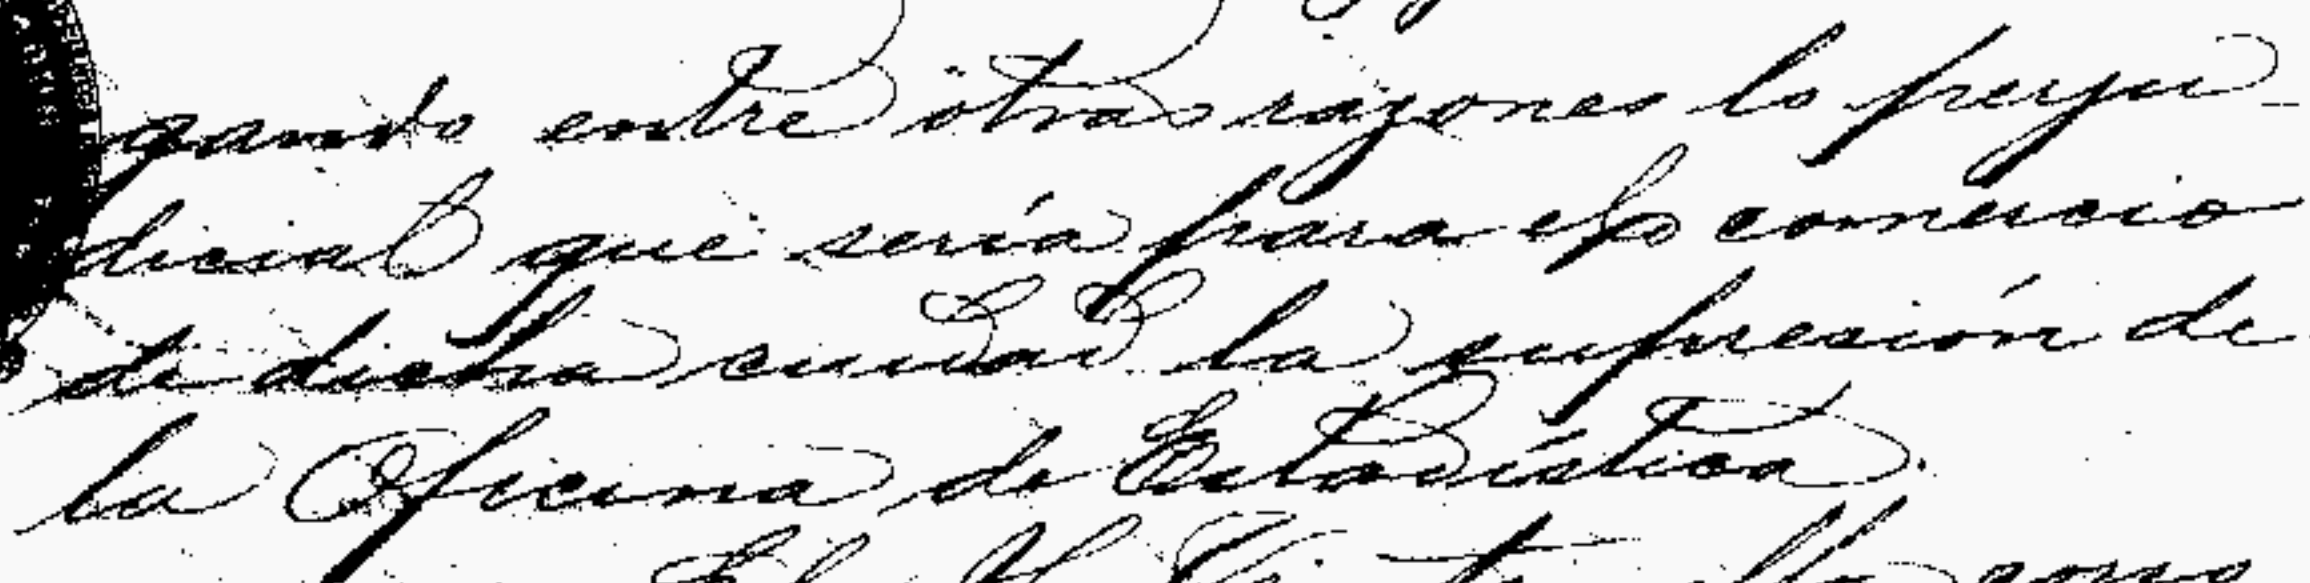 gando entre otras razones lo perju-
dicial que sería para el comercio
de dicha ciudad la supresión de
la Oficina de Estadística.